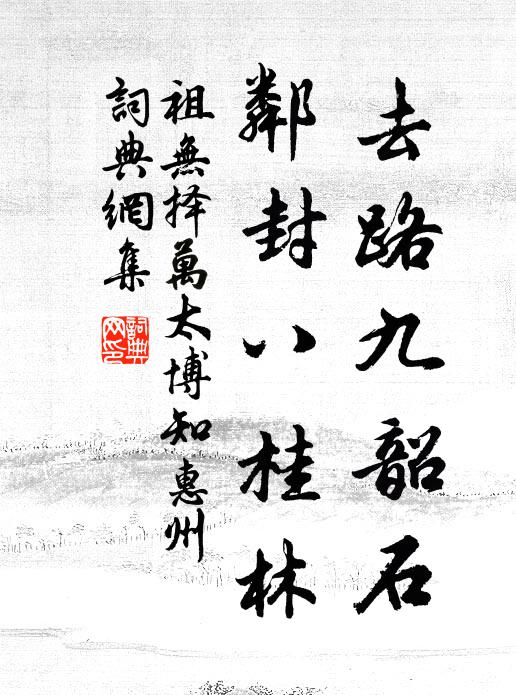 去路九韶石
鄰封八桂林
祖無择萬太博知惠州
詞典網集
詞典网印